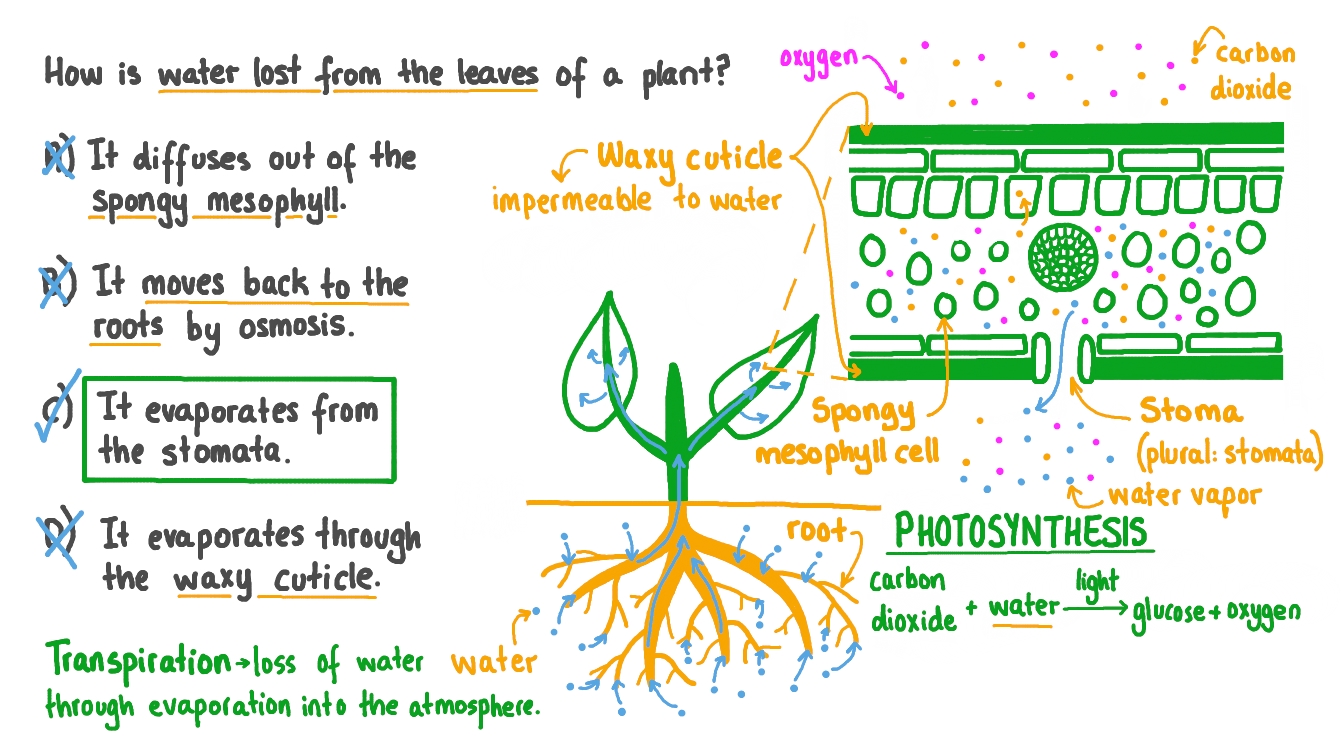 How is water lost from the leaves of a plant?
A) It diffuses out of the
spongy mesophyll.
B) It moves back to the
roots by osmosis.
C) It evaporates from
the stomata.
D) It evaporates through
the waxy cuticle.
Transpiration→loss of water
through evaporation into the atmosphere.
oxygen
carbon
dioxide
Waxy cuticle
impermeable to water
Spongy
mesophyll cell
Stoma
(plural: stomata)
water vapor
root
water
PHOTOSYNTHESIS
carbon
dioxide + water light→ glucose + oxygen